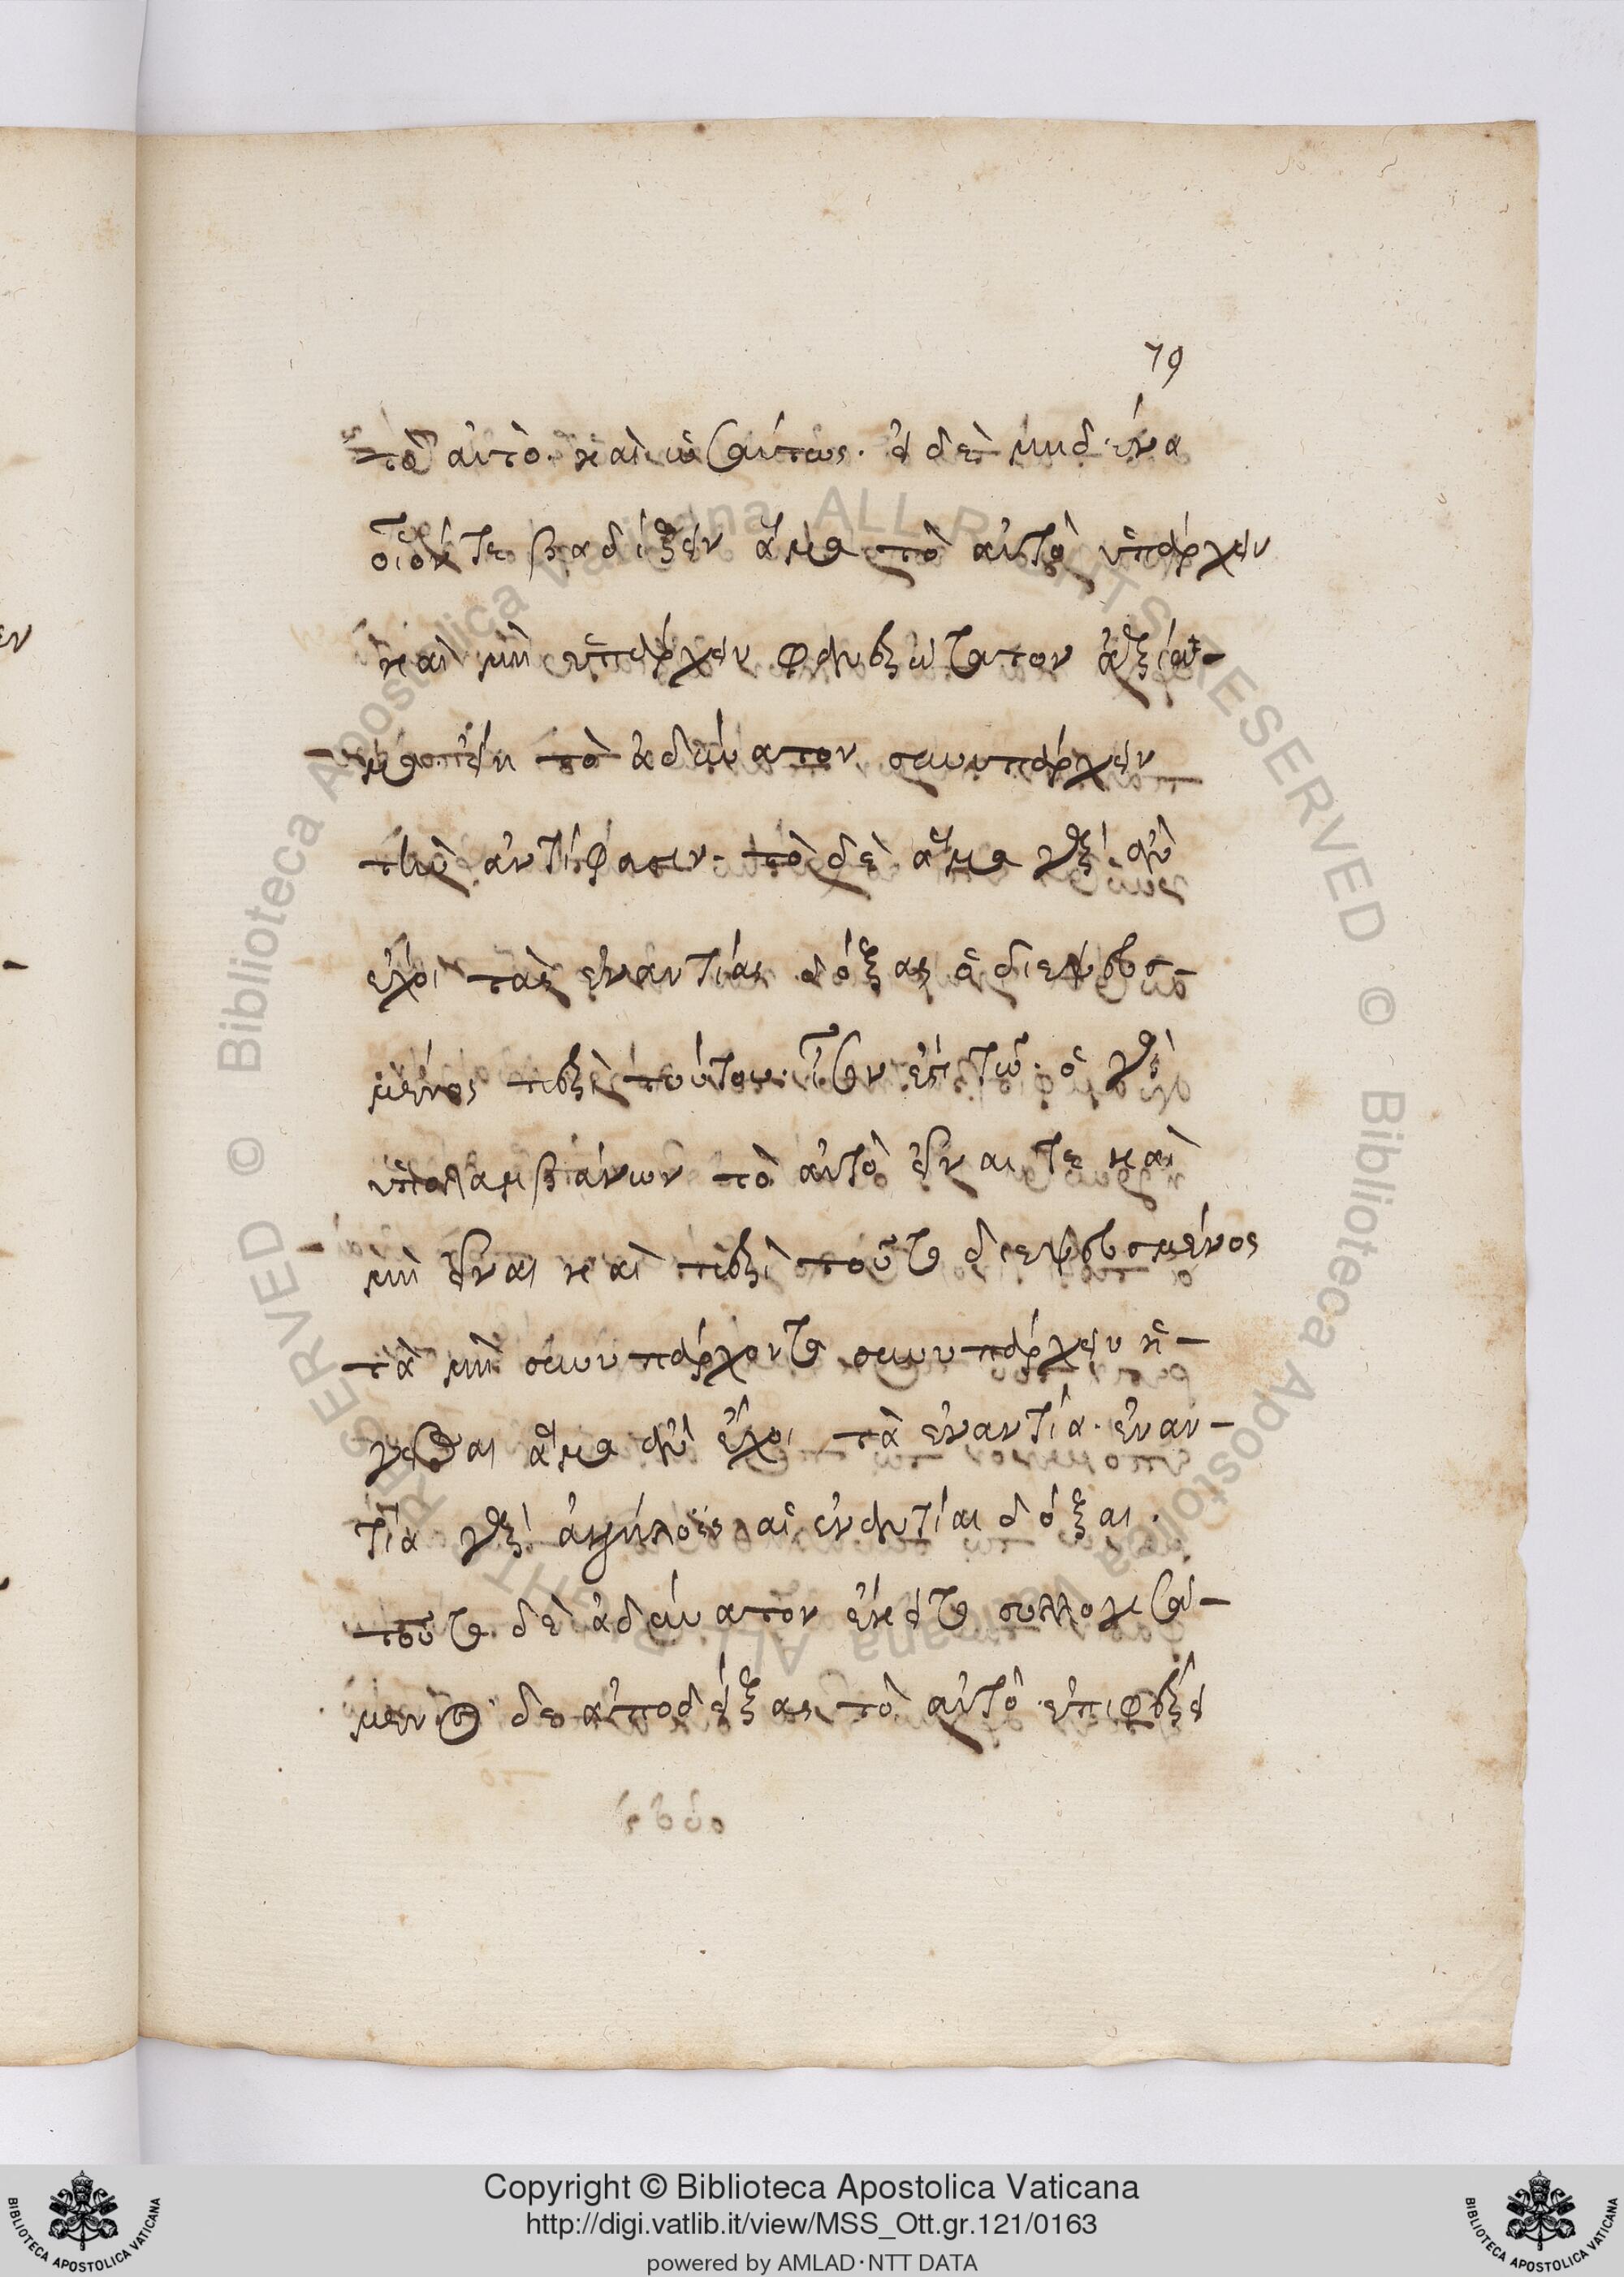 79
τὸ αὐτὸ. καὶ ὡσαύτως. εἰ δὲ μηδένα
οἷόντε βαδίζειν ἅμα τὸ αὐτὸ ὑπάρχειν
καὶ μὴ ὑπάρχειν φανερώτατον ἀξίω-
μα τὸ ἀδύνατον συνυπάρχειν
τὴν ἀντίφασιν. τὸ δὲ ἅμα γὰρ ἂν
ἔχοι τὰς ἐναντίας δόξας ὁ διεψευσ-
μένος περὶ τούτου. ὁ γὰρ
ὑπολαμβάνων τὸ αὐτὸ εἶναι τε καὶ
μὴ εἶναι καὶ περὶ τοῦτα διεψευσμένος
τὰ μὴ συνυπάρχοντα συνυπάρχειν ἡ-
γεῖσθαι ἅμα ἂν ἔχοι τὰ ἐναντία. ἐναν-
τία γὰρ ἀλλήλοις αἱ ἐναντίαι δόξαι.
ταῦτα δὲ ἀδύνατον συλλογισά-
μενος δὲ ἀποδείξας τὸ αὐτὸ ἐπιφέρει
Copyright © Biblioteca Apostolica Vaticana
http://digi.vatlib.it/view/MSS_Ott.gr.121/0163
powered by AMLAD·NTT DATA
BIBLIOTECA APOSTOLICA VATICANA
BIBLIOTECA APOSTOLICA VATICANA
© Biblioteca Apostolica Vaticana ALL RIGHTS RESERVED
© Biblioteca Apostolica Vaticana ALL RIGHTS RESERVED